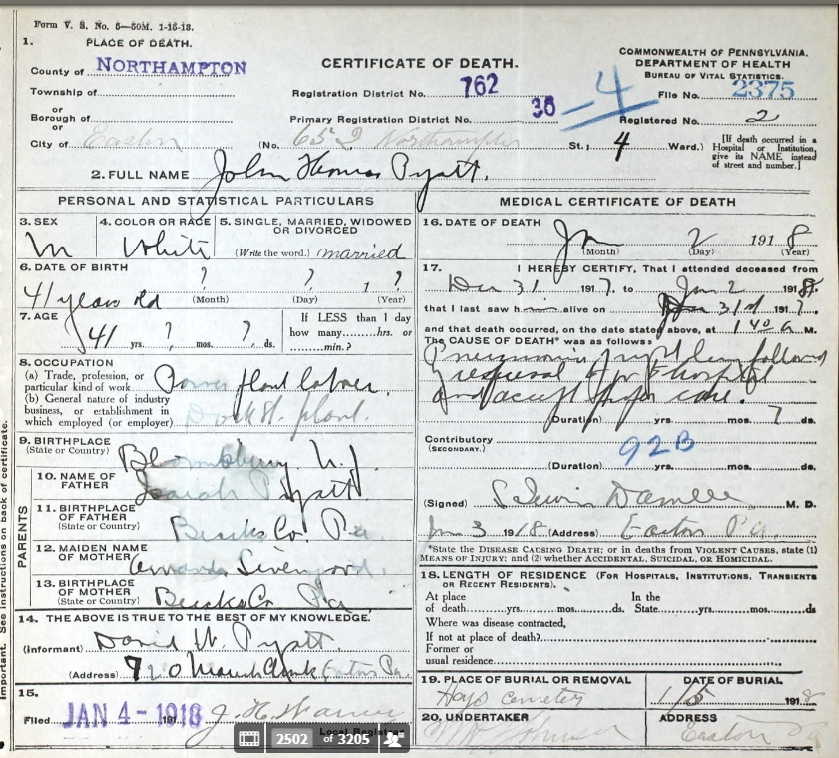 Form V. S. No. 5—50M. 1-16-18.
1. PLACE OF DEATH.
County of NORTHAMPTON
Township of
or
Borough of
or
City of Easton
CERTIFICATE OF DEATH.
Registration District No. 762
Primary Registration District No. 36
(No. 652 Northampton St.; 4 Ward.)
COMMONWEALTH OF PENNSYLVANIA.
DEPARTMENT OF HEALTH
BUREAU OF VITAL STATISTICS.
File No. 2375
Registered No. 2
-4
[If death occurred in a
Hospital or Institution,
give its NAME instead
of street and number.]
2. FULL NAME John Thomas Pyatt.
PERSONAL AND STATISTICAL PARTICULARS
3. SEX
M
4. COLOR OR RACE
White
5. SINGLE, MARRIED, WIDOWED
OR DIVORCED
(Write the word.) married
6. DATE OF BIRTH
? ? 1 ?
41 years old (Month) (Day) (Year)
7. AGE
41 yrs. ? mos. ? ds.
If LESS than 1 day
how many hrs. or
min.?
8. OCCUPATION
(a) Trade, profession, or
particular kind of work Power plant labor.
(b) General nature of industry
business, or establishment in
which employed (or employer) plant
9. BIRTHPLACE
(State or Country) Bloomsbury N.J.
PARENTS
10. NAME OF
FATHER Isaiah Pyatt
11. BIRTHPLACE
OF FATHER
(State or Country) Bucks Co. Pa
12. MAIDEN NAME
OF MOTHER Amanda
13. BIRTHPLACE
OF MOTHER
(State or Country) Bucks Co Pa.
14. THE ABOVE IS TRUE TO THE BEST OF MY KNOWLEDGE.
(Informant) David W. Pyatt
(Address) 920 Easton Pa.
15.
Filed JAN 4 - 1918 191 J. H.
Local Registrar
MEDICAL CERTIFICATE OF DEATH
16. DATE OF DEATH
Jan 2 1918
(Month) (Day) (Year)
17. I HEREBY CERTIFY, That I attended deceased from
Dec 31 1917, to Jan 2 1918
that I last saw him alive on Dec 31st 1917.
and that death occurred, on the date stated above, at 1 40 a M.
The CAUSE OF DEATH* was as follows:
Pneumonia followed
removal to hospital
and
(Duration) yrs. mos. 7 ds.
Contributory
(SECONDARY.)
92B
(Duration) yrs. mos. ds.
(Signed) M. D.
Jan 3 1918 (Address) Easton Pa.
*State the DISEASE CAUSING DEATH; or in deaths from VIOLENT CAUSES, state (1)
MEANS OF INJURY; and (2) whether ACCIDENTAL, SUICIDAL, OR HOMICIDAL.
18. LENGTH OF RESIDENCE (FOR HOSPITALS, INSTITUTIONS, TRANSIENTS
OR RECENT RESIDENTS).
At place In the
of death yrs. mos. ds. State yrs. mos. ds
Where was disease contracted,
If not at place of death?
Former or
usual residence
19. PLACE OF BURIAL OR REMOVAL
Hays Cemetery
DATE OF BURIAL
1/5 1918
20. UNDERTAKER
Johnson
ADDRESS
Easton Pa
Important. See instructions on back of certificate.
2502 of 3205